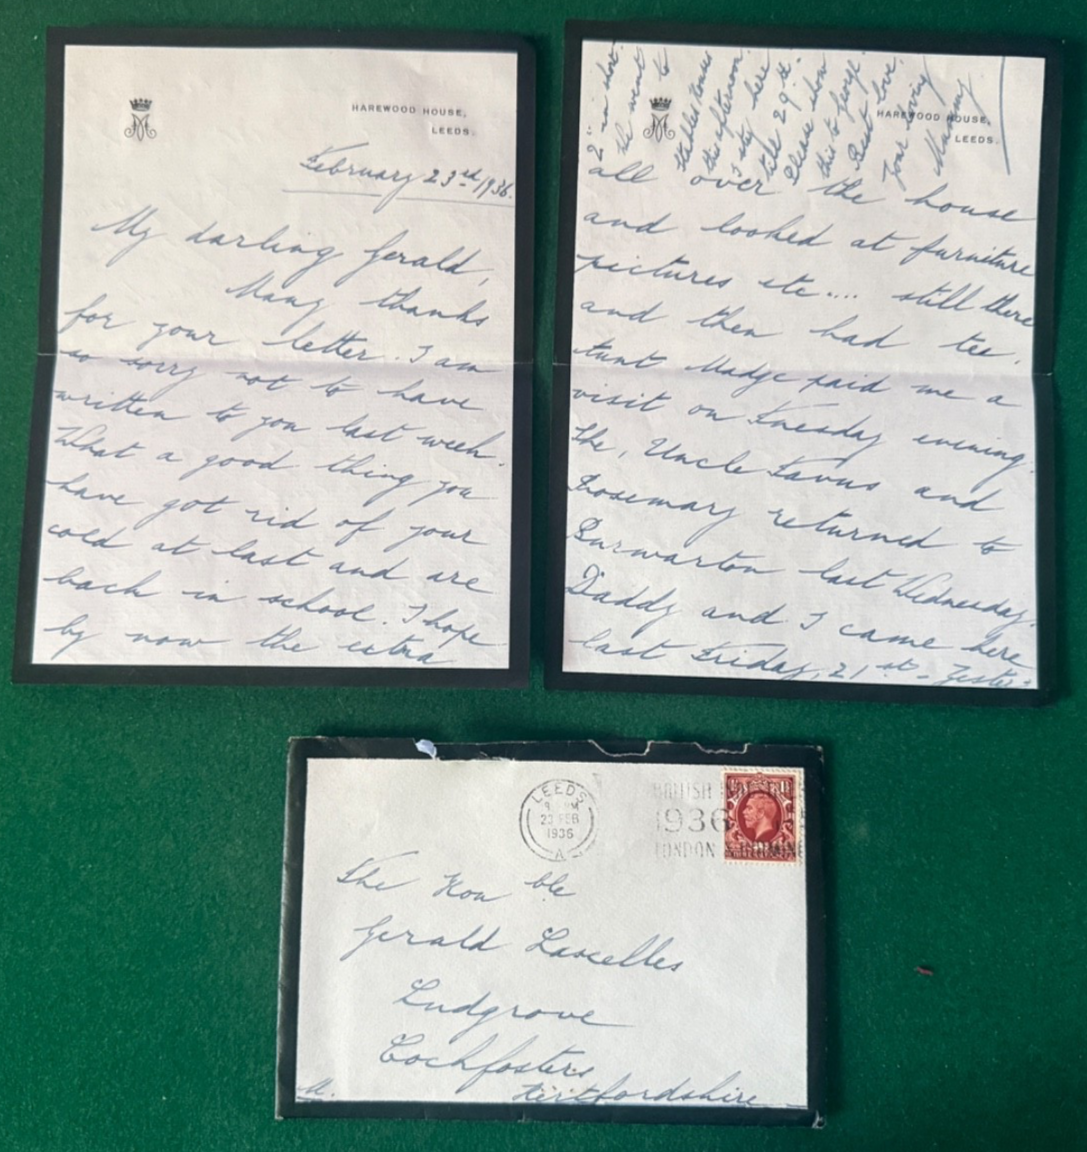 HAREWOOD HOUSE,
LEEDS.
February 23rd/1936.
My darling Gerald,
Many thanks
for your letter. I am
so sorry not to have
written to you last week.
What a good thing you
have got rid of your
cold at last and are
back in school. I hope
by now the extra
HAREWOOD HOUSE,
LEEDS.
all over the house
and looked at furniture
pictures etc.... still there
and then had tea.
Aunt Madge paid me a
visit on Tuesday evening.
She, Uncle and
Rosemary returned to
Burwarton last Wednesday.
Daddy and I came here
last Friday, 21st. Yester-
this afternoon.
I stay here
till 29th.
Please show
this to George.
Best love.
Your loving
Mummy
LEEDS
23 FEB
1936
A
BRITISH
1936
LONDON &
The Honble
Gerald Lascelles
Ludgrove
Cockfosters
Hertfordshire
M.